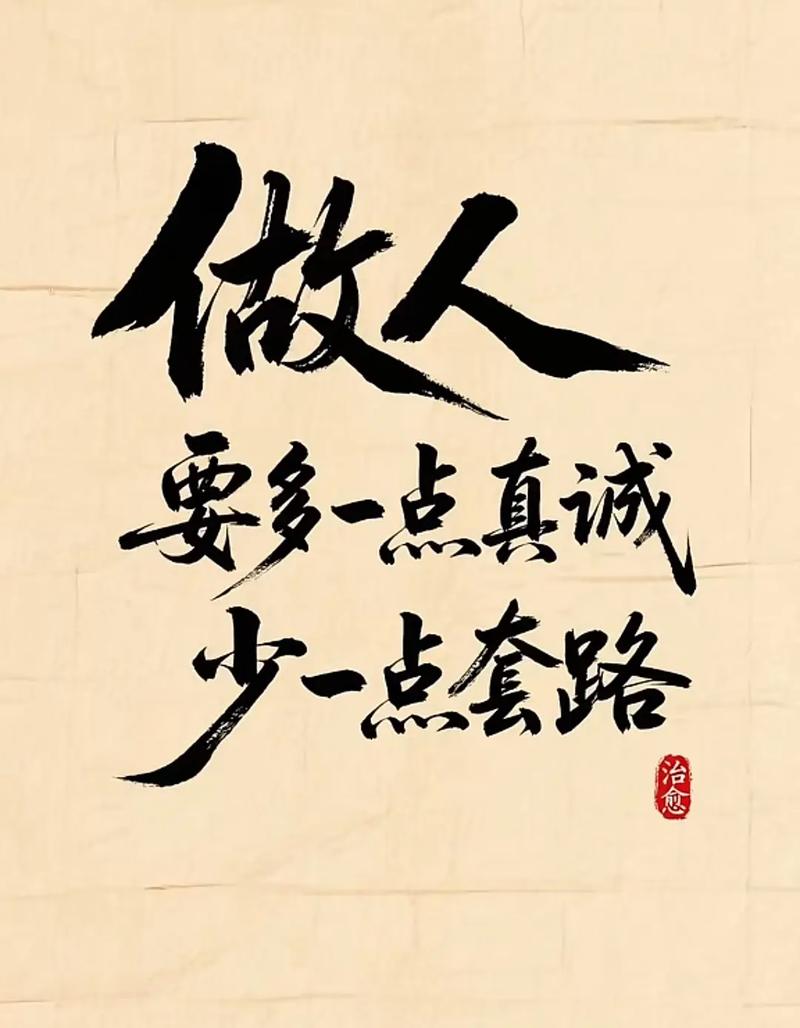 做人
要多一点真诚
少一点套路
治愈